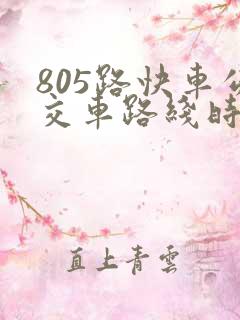 805路快車公
交車路綫時
直上青雲